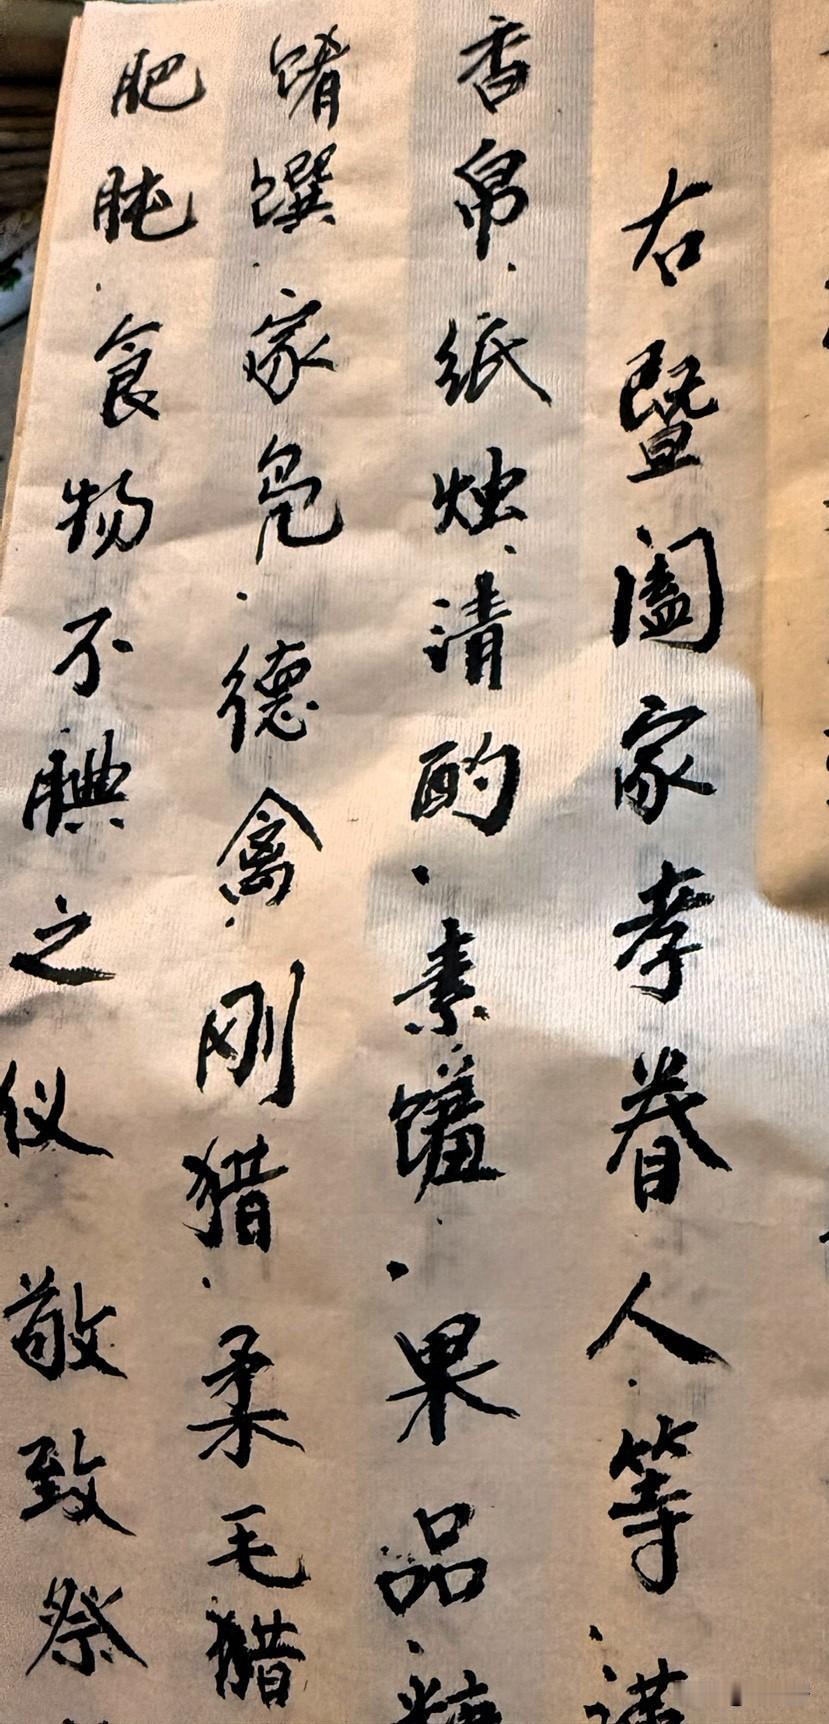 右暨阖家孝眷人等谨
香帛纸烛清酌素馐果品粢
馐馔家凫德禽刚猎柔毛猎
肥肫食物不腆之仪敬致祭